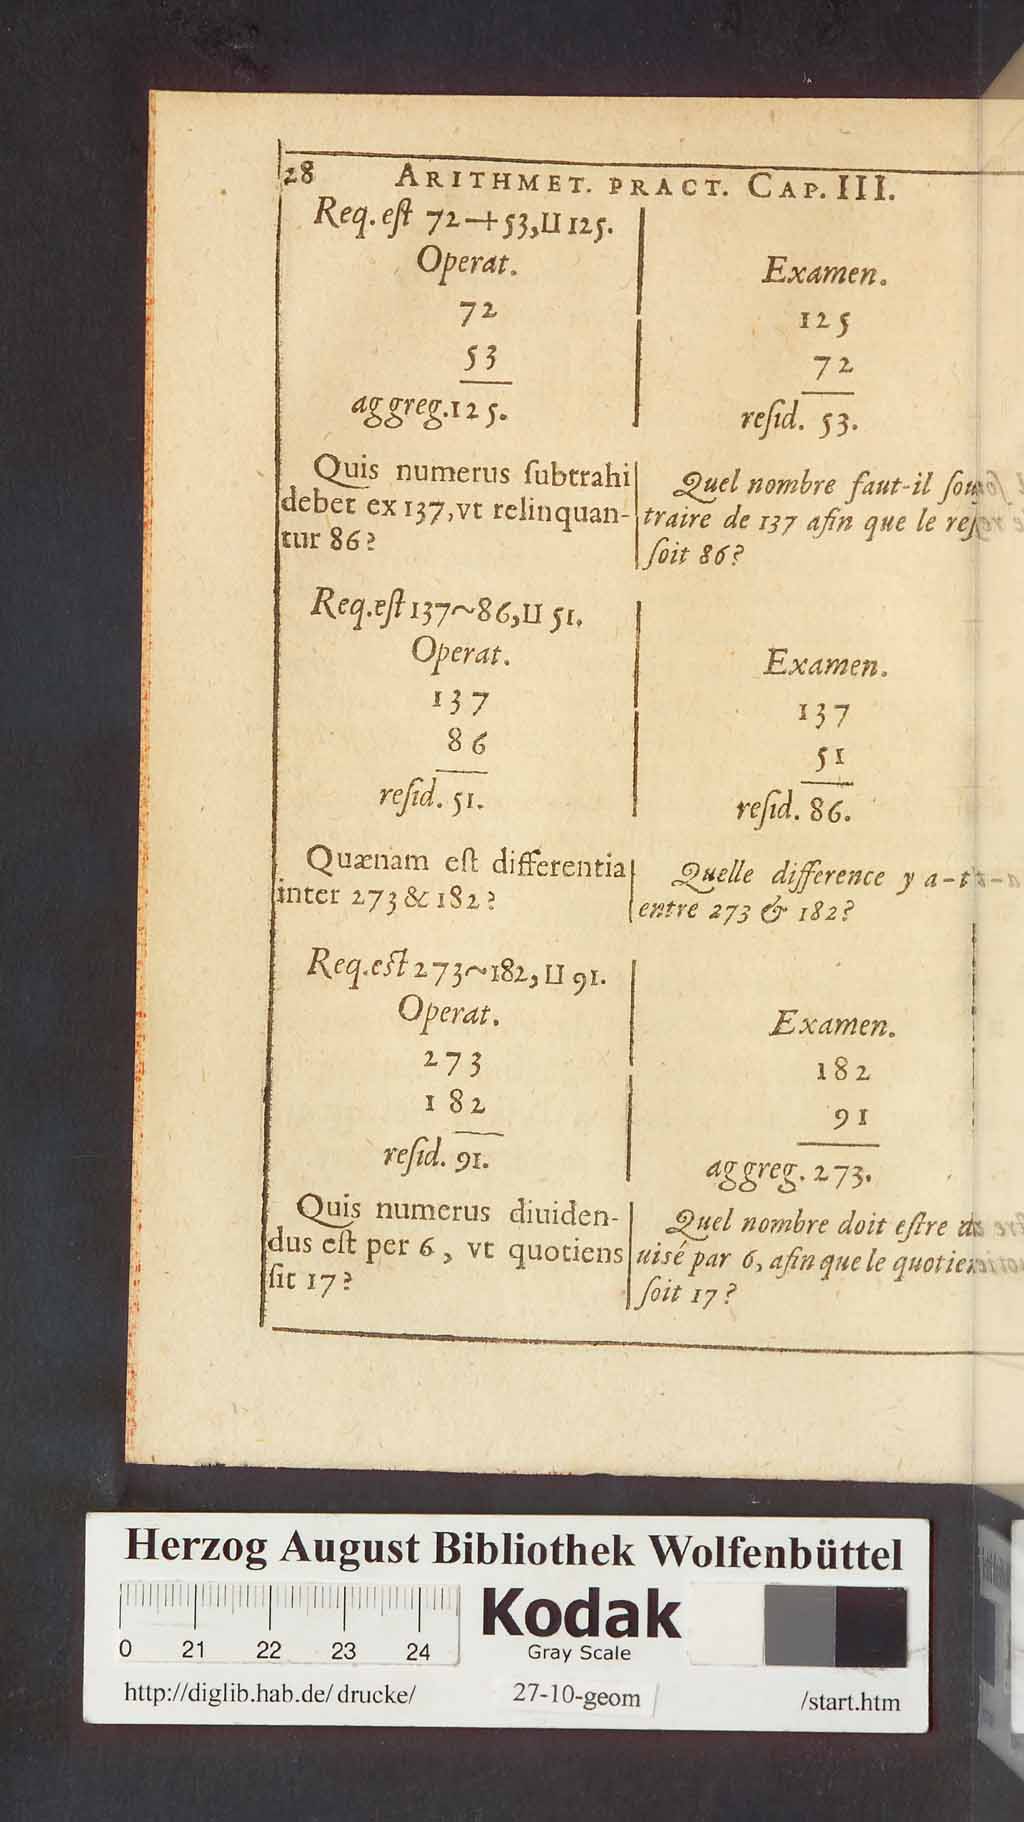 28 ARITHMET. PRACT. CAP. III.
Req. eſt 72+53, II 125.
Operat.
72
53
aggreg. 125.
Examen.
125
72
reſid. 53.
Quis numerus ſubtrahi
debet ex 137, vt relinquan-
tur 86?
Quel nombre faut-il ſou
traire de 137 afin que le reſ
ſoit 86?
Req. eſt 137~86, II 51.
Operat.
137
86
reſid. 51.
Examen.
137
51
reſid. 86.
Quænam eſt differentia
inter 273 & 182?
Quelle difference y a-t
entre 273 & 182?
Req. eſt 273~182, II 91.
Operat.
273
182
reſid. 91.
Examen.
182
91
aggreg. 273.
Quis numerus diuiden-
dus eſt per 6, vt quotiens
ſit 17?
Quel nombre doit eſtre di
uisé par 6, afin que le quotien
ſoit 17?
Herzog August Bibliothek Wolfenbüttel
Kodak
Gray Scale
0 21 22 23 24
http://diglib.hab.de/drucke/ 27-10-geom /start.htm